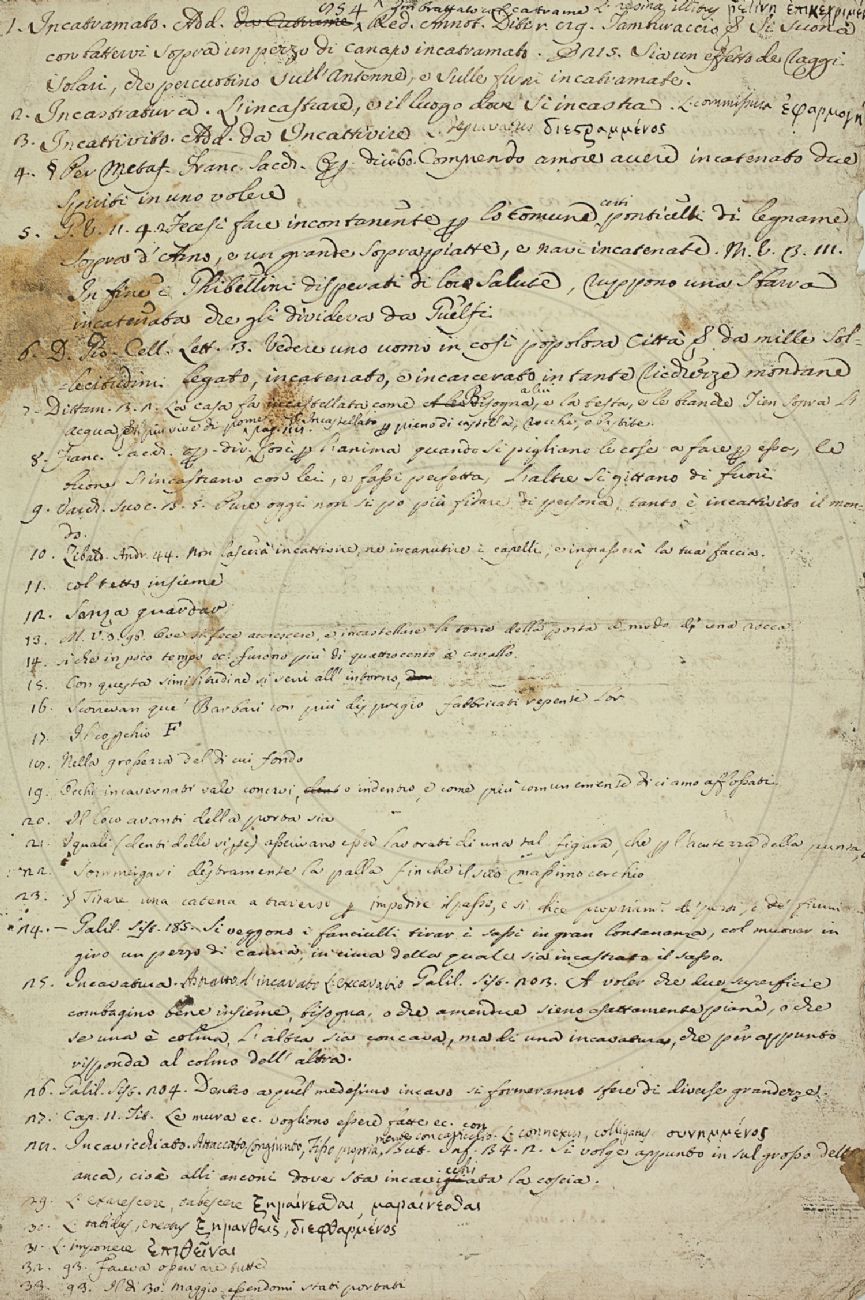 254
1. Incatramato. Add. da Catrame imbrattato con catrama L. resina illitus ῥετίνῃ ἐπικεχριμένος Red. Annot. Ditir. Tamburaccio § Si suona
con battervi sopra un pezzo di canapo incatramato. Sia un effetto de' raggi
solari, che percuotino sull'antenne, e sulle funi incatramate.
2. Incastratura. L'incastrare, e il luogo dove si incastra. L. commissura ἐφαρμογή
3. Incattivito. Add. da Incattivire L. διεστραμμένος
4. § Per Metaf. Franc. Sacch. Op. div. 60. Compendo amore avere incatenato due
spiriti in uno volere
5. G. V. 11. 42. Fecesi fare incontanente p lo Comune certi ponticelli di legname
sopra d'Arno, e un grande sopra piatte, e navi incatenate. M. V. 3. 111.
In fine i Ghibellini disperati di loro salute, ruppono una sbarra
incatenata che gli divideva da Guelfi.
6. D. Gio. Cell. Lett. 13. Vedere uno uomo in così popolosa Città § da mille sol-
lecitudini legato, incatenato, e incarcerato in tante ricchezze mondane
7. Dittam. La casa fa incastellata come bisogna, e la testa, e le branche tien sopra l'
acqua Incastellato p pieno di castella, rocche, o bastite.
8. Franc. Sacch. Op. div. Così p l'anima quando si pigliano le cose a fare p essa, le
buone s'incastrano con lei, e fassi perfetta, l'altre si gittano di fuori
9. Sacch. Pure oggi non si po più fidare di persona, tanto è incattivito il mon-
do.
10. Zibald. Andr. 44. Non lascia incattivire, ne incanutire i capelli, e ingrassa la tua faccia.
11. col tetto insieme
12. Senza guardar
13. M. V. 3. 98. Ove si fece accrescere, e incastellare la torre della porta a modo di una rocca
14. si che in poco tempo ec. furono più di quattrocento a cavallo.
15. Con questa similitudine si servì all'intorno,
16. Scorrevan que' Barbari con più dispregio fabbricati repente lor
17. Il cocchio F
18. Nella grossezza del di cui fondo
19. Occhi incavernati vale concavi, indentro, e come più comunemente diciamo affossati.
20. Il loco avanti della porta sia
21. I quali (denti delle vipere) asserivano esser lavorati di una tal figura, che p l'acutezza della punta,
22. Sommergasi destramente la palla finchè il suo massimo cerchio
23. § Tirare una catena a traverso p impedire il passo, e si dice propriam. de' porti, e de' fiumi
24. — Galil. Sist. 185. Si veggono i fanciulli tirar i sassi in gran lontananza, col muover in
giro un pezzo di canna, in cima della quale sia incastrato il sasso.
25. Incavatura. Astratto d'incavato L. excavatio Galil. Sist. 203. A voler che due superficie
combagino bene insieme, bisogna, o che amendue sieno esattamente piane, o che
se una è colma, l'altra sia concava, ma di una incavatura, che per appunto
risponda al colmo dell'altra.
26. Galil. Sist. 204. Dentro a quel medesimo incavo si formeranno sfere di diverse grandezze.
27. Cap. 11. Tit. Le mura ec. vogliono essere fatte ec. con
28. Incavicchiato. Attaccato, Congiunto, Fisso propria mente con cavicchio. L. connexus, colligatus συνημμένος But. Inf. 34. 2. Si volge appunto in sul grosso dell'
anca, cioè alli anconi dove sta incavicchiata la coscia.
29. L. exarescere, tabescere ξηραίνεσθαι, μαραίνεσθαι
30. L. tabidus, enectus ξηρανθεὶς, διεφθαρμένος
31. L. imponere ἐπιθεῖναι
32. 93. Faceva operare tutto
33. 93. Il dì 30. Maggio essendomi stati portati